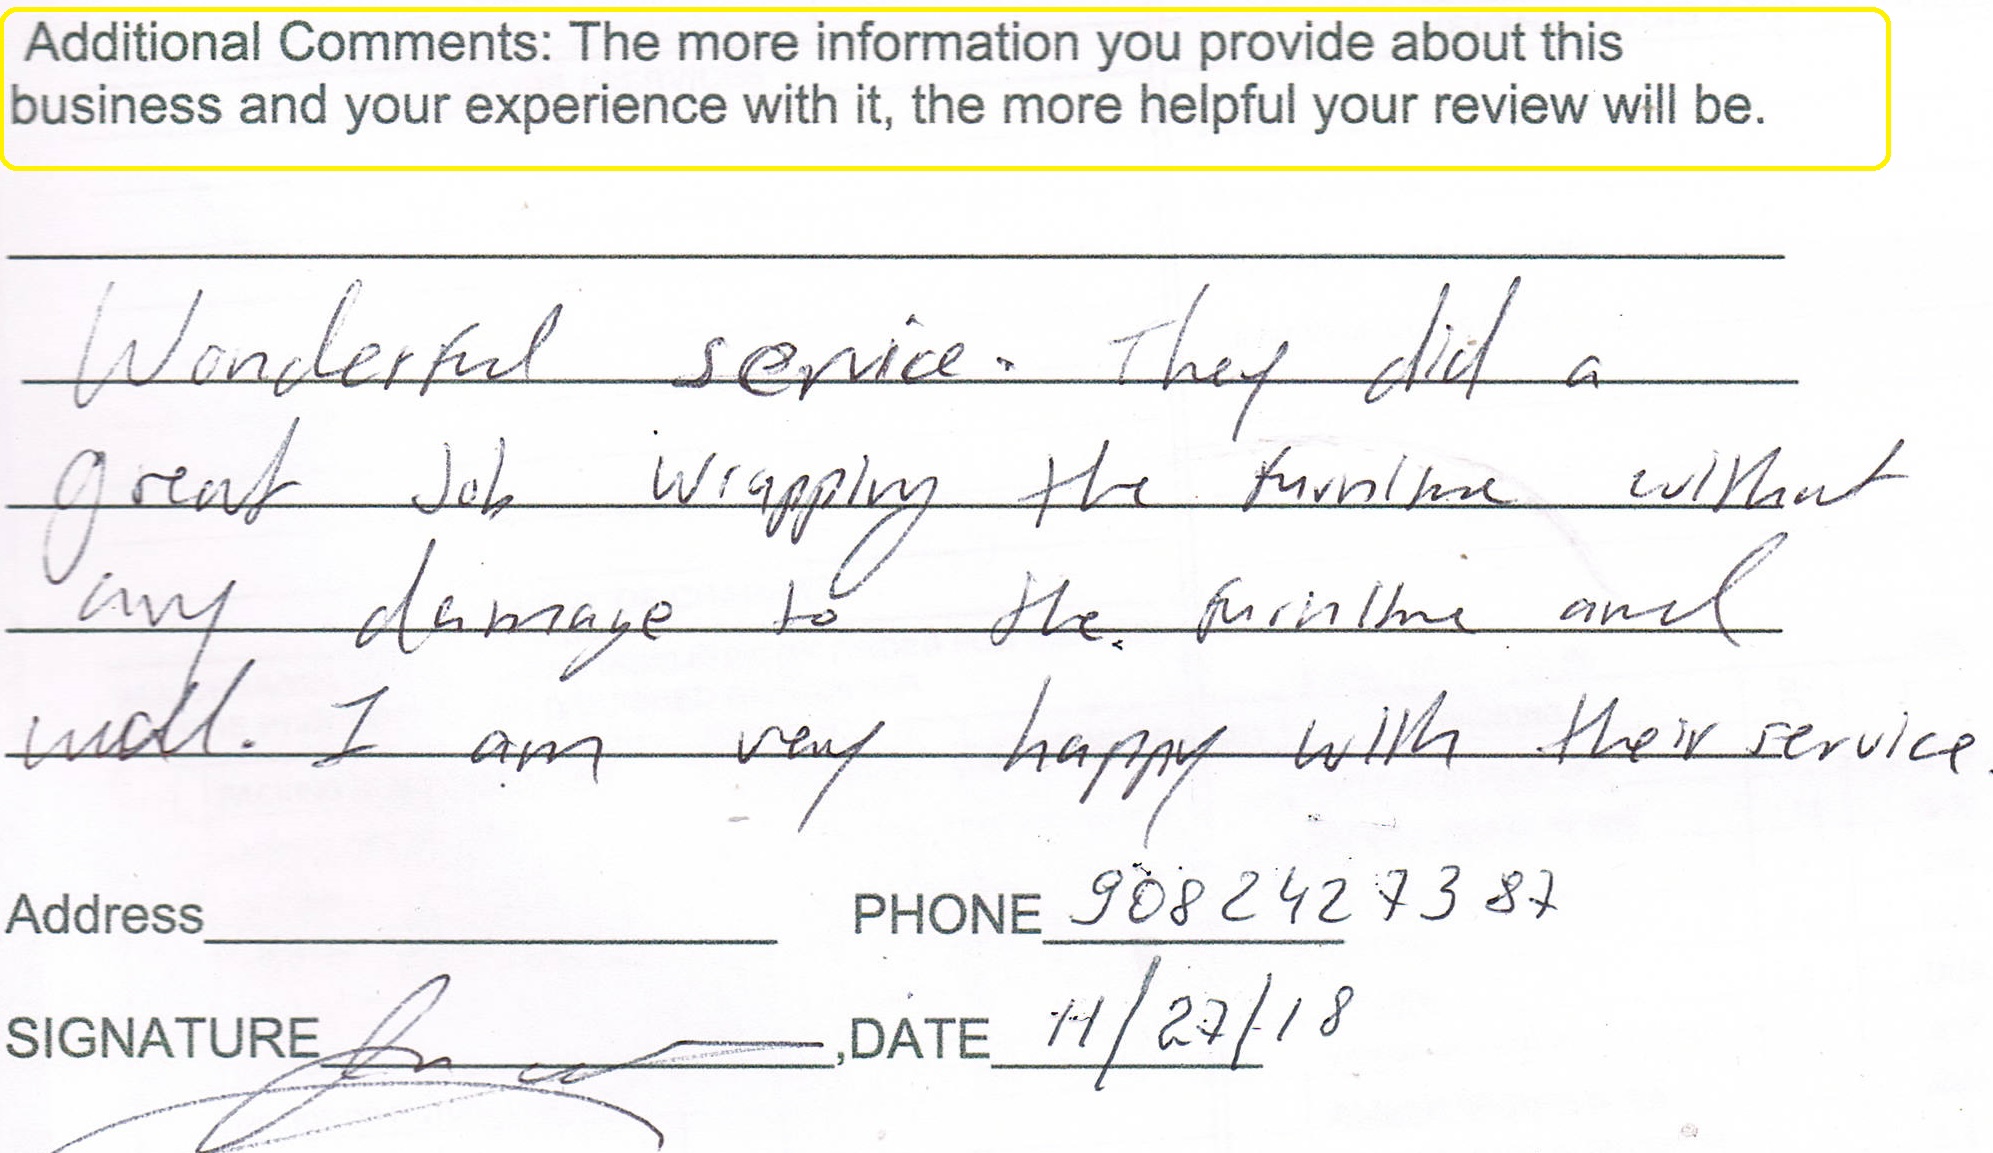 Additional Comments: The more information you provide about this
business and your experience with it, the more helpful your review will be.
Wonderful service. They did a
great Job wrapping the furniture without
any damage to the furniture and
wall. I am very happy with their service.
Address PHONE 9082427387
SIGNATURE ,DATE 11/27/18